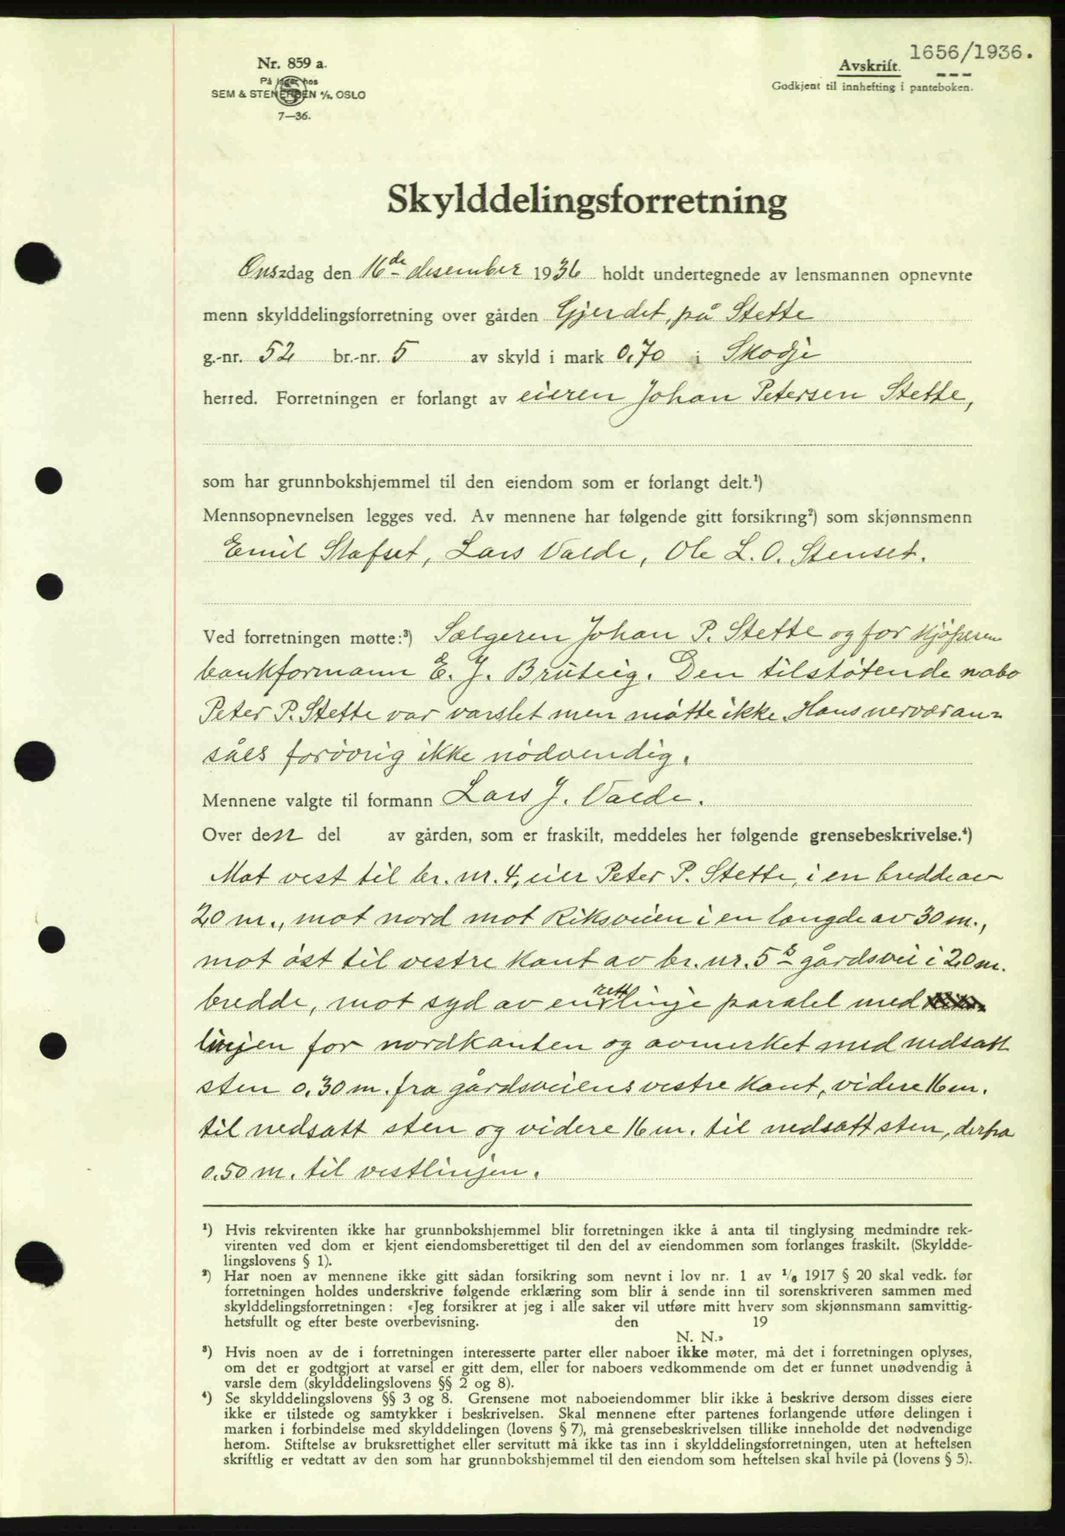 1656/1936.
Nr. 859 a.
På lager hos
SEM & STENERSEN A/S, OSLO
7—36.
Avskrift.
Godkjent til innhefting i panteboken.
Skylddelingsforretning
Onsdag den 16de desember 1936 holdt undertegnede av lensmannen opnevnte
menn skylddelingsforretning over gården Gjerdet, på Stette
g.-nr. 52 br.-nr. 5 av skyld i mark 0,70 i Skodje
herred. Forretningen er forlangt av eieren Johan Petersen Stette,
som har grunnbokshjemmel til den eiendom som er forlangt delt.¹)
Mennsopnevnelsen legges ved. Av mennene har følgende gitt forsikring²) som skjønnsmenn
Emil Slafset, Lars Valde, Ole L. O. Stenset.
Ved forretningen møtte:³) Sælgeren Johan P. Stette og for kjøperen
bankformann E. J. Bruteig. Den tilstøtende nabo
Peter P. Stette var varslet men møtte ikke. Hans nerværan-
såes forøvrig ikke nødvendig.
Mennene valgte til formann Lars J. Valde.
Over den del av gården, som er fraskilt, meddeles her følgende grensebeskrivelse.⁴)
Mot vest til br. nr. 4, eier Peter P. Stette, i en bredde av
20 m., mot nord mot Riksveien i en længde av 30 m.,
mot øst til vestre kant av br. nr. 5s gårdsvei i 20 m.
bredde, mot syd av en rett linje paralel med
linjen for nordkanten og avmerket med nedsatt
sten 0,30 m. fra gårdsveiens vestre kant, videre 16 m.
til nedsatt sten og videre 16 m. til nedsatt sten, derfra
0,50 m. til vestlinjen.
¹) Hvis rekvirenten ikke har grunnbokshjemmel blir forretningen ikke å anta til tinglysing medmindre rek-
virenten ved dom er kjent eiendomsberettiget til den del av eiendommen som forlanges fraskilt. (Skyldde-
lingslovens § 1).
²) Har noen av mennene ikke gitt sådan forsikring som nevnt i lov nr. 1 av 1/6 1917 § 20 skal vedk. før
forretningen holdes underskrive følgende erklæring som blir å sende inn til sorenskriveren sammen med
skylddelingsforretningen: «Jeg forsikrer at jeg i alle saker vil utføre mitt hverv som skjønnsmann samvittig-
hetsfullt og efter beste overbevisning. den 19
N. N.»
³) Hvis noen av de i forretningen interesserte parter eller naboer ikke møter, må det i forretningen oplyses,
om det er godtgjort at varsel er gitt dem, eller for naboers vedkommende om det er funnet unødvendig å
varsle dem (skylddelingslovens §§ 2 og 8).
⁴) Se skylddelingslovens §§ 3 og 8. Grensene mot naboeiendommer blir ikke å beskrive dersom disses eiere
ikke er tilstede og samtykker i beskrivelsen. Skal mennene efter partenes forlangende utføre delingen i
marken i forbindelse med skylddelingen (lovens § 7), må grensebeskrivelsen tillike inneholde det nødvendige
herom. Stiftelse av bruksrettighet eller servitutt må ikke tas inn i skylddelingsforretningen, uten at heftelsen
skriftlig er vedtatt av den som har grunnbokshjemmel til den eiendom som heftelsen skal hvile på (lovens § 5).